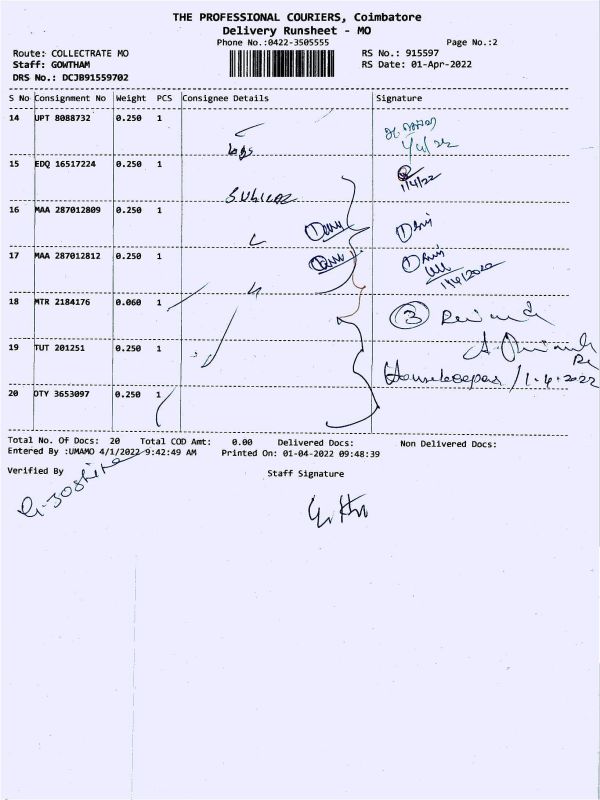 THE PROFESSIONAL COURIERS, Coimbatore
Delivery Runsheet - MO
Phone No.:0422-3505555 Page No.:2
Route: COLLECTRATE MO RS No.: 915597
Staff: GOWTHAM RS Date: 01-Apr-2022
DRS No.: DCJB91559702
S No Consignment No Weight PCS Consignee Details Signature
14 UPT 8088732 0.250 1
1/4/22
15 EDQ 16517224 0.250 1
1/4/22
16 MAA 287012809 0.250 1
17 MAA 287012812 0.250 1
1/4/2022
18 MTR 2184176 0.060 1
3
19 TUT 201251 0.250 1
Housekeeper / 1.4.2022
20 DTY 3653097 0.250 1
Total No. Of Docs: 20 Total COD Amt: 0.00 Delivered Docs: Non Delivered Docs:
Entered By :UMAMO 4/1/2022 9:42:49 AM Printed On: 01-04-2022 09:48:39
Verified By Staff Signature